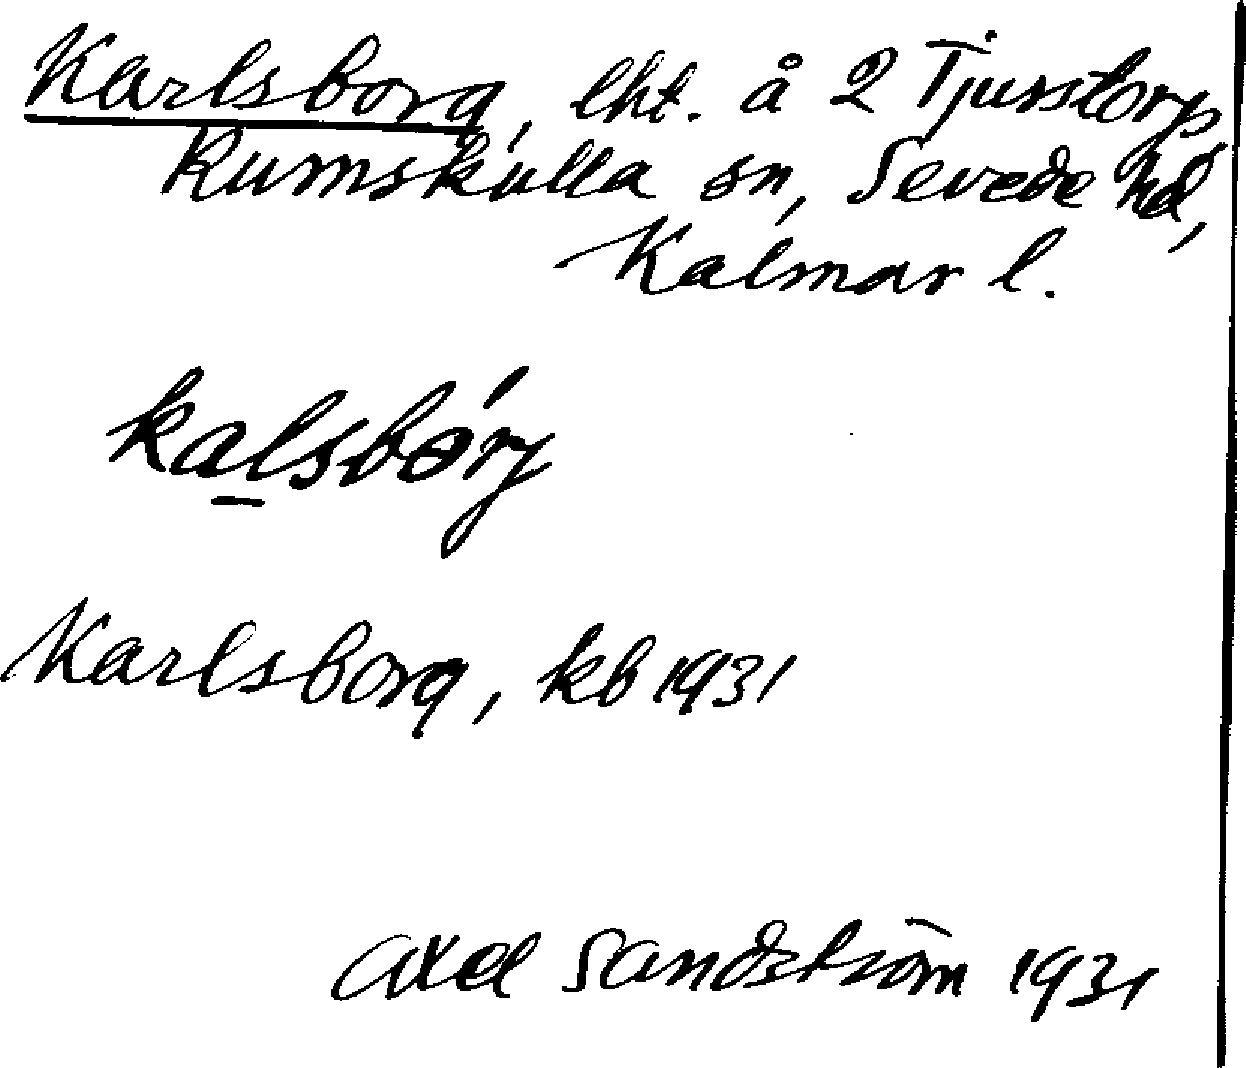 Karlsborg, lht. å 2 Tjusstorp
Rumskulla sn, Sevede hd,
Kalmar l.
kalsbórj
Karlsborg, kb 1931
Axel Sandström 1931